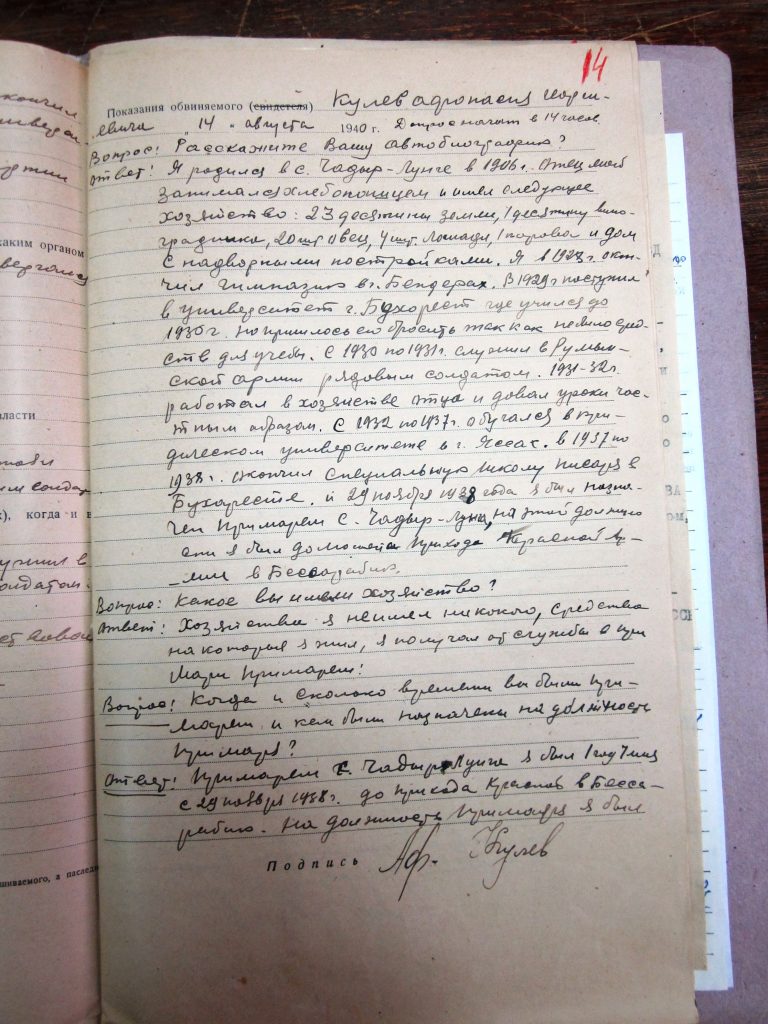 14
Показания обвиняемого (свидетеля) Кулев Афонасия Иорги-
евича „14„ августа 1940 г. Допрос начат в 14 часов.
Вопрос: Расскажите Вашу автобиографию?
Ответ: Я родился в с. Чадыр-Лунге в 1906 г. Отец мой
занимался хлебопашцем и имел следующее
хозяйство: 23 десятины земли, 1 десятину вино-
градника, 20 шт овец, 4 шт. лошади, 1 корова и дом
с надворными постройками. Я в 1928 г. окон-
чил гимназию в г. Бендерах. В 1929 г поступил
в университет г. Бухорест где учился до
1930 г. но пришлось его бросить так как не было сред-
ств для учебы. С 1930 по 1931 г. служил в Румын-
ской армии рядовым солдатом. 1931-32 г.
работал в хозяйстве отца и довал уроки час-
тным образом. С 1932 по 1937 г. обучался в юри-
дическом университете в г. Яссах. в 1937 по
1938 г. окончил специальную школу писаря в
Бухаресте. и 29 ноября 1938 года я был назна-
чен примарем с. Чадыр-Лунга, на этой должно-
сти я был до прихода Красной Ар-
мии в Бессарабию.
Вопрос: Какое вы имели хозяйство?
Ответ: Хозяйства я не имел никокого, средства
на которые я жил, я получал от службы в при
марии примарем!
Вопрос: Когда и сколько времени вы были при-
марем и кем были назначены на должность
примаря?
Ответ: Примарем с. Чадыр-Лунга я был 1 год 7 мес
с 29 ноября 1938 г. до прихода Красной в Бесса-
рабию. На должность примаря я был
Подпись Аф. Кулев
каким органом
власти
), когда и в